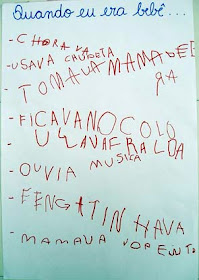 Quando eu era bebê...
- CHORAVA
- USAVA CHUPETA
- TOMAVA MAMADEI
RA
- FICAVA NO COLO
- USAVA FRALDA
- OUVIA MUSICA
- ENGATINHAVA
- MAMAVA NO PEITO